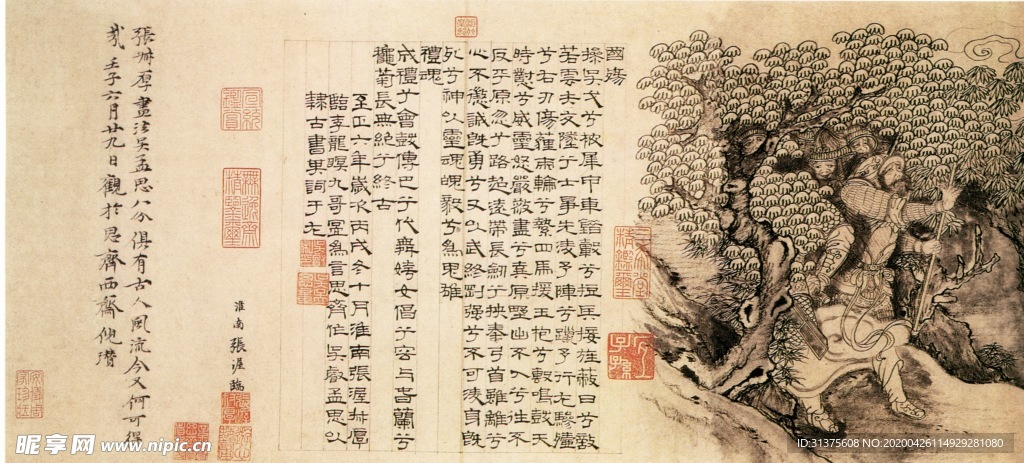 國殤
操吳戈兮被犀甲車錯轂兮短兵接旌蔽日兮敵
若雲矢交墜兮士爭先淩予陣兮躐予行左驂殪
兮右刃傷霾兩輪兮縶四馬援玉枹兮擊鳴鼓天
時懟兮威靈怒嚴殺盡兮棄原壄出不入兮往不
反平原忽兮路超遠帶長劍兮挾秦弓首雖離兮
心不懲誠既勇兮又以武終剛強兮不可凌身既
死兮神以靈魂魄毅兮為鬼雄
禮魂
成禮兮會鼓傳巴兮代舞姱女倡兮容與春蘭兮
龝菊長無絕兮終古
至正六年歲次丙戌冬十月淮南張渥叔厚
臨李龍眠九哥圖為言思齊作吳睿孟思以
隸古書其詞于左
淮南張渥臨
張叔厚畫法吳孟思八分俱有古人風流今又何可得
哉壬子六月廿九日觀於思齊西齋倪瓚
昵享网 www.nipic.cn
ID:31375608 NO:20200426114929281080